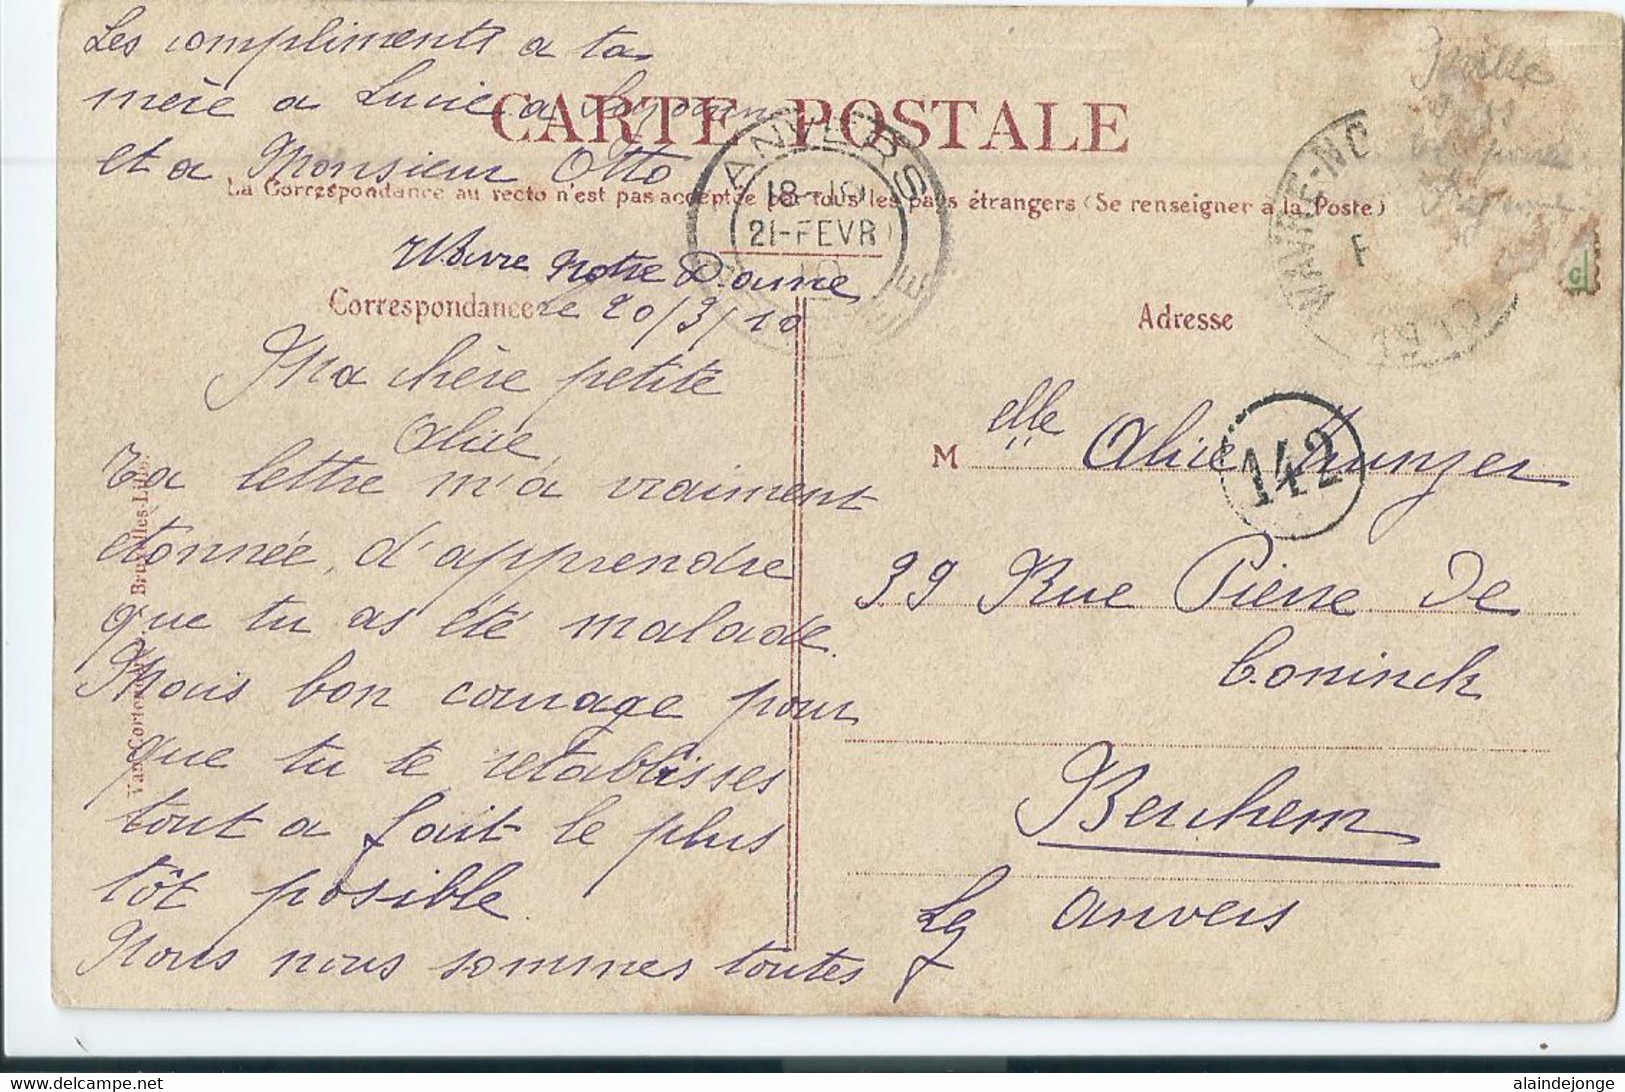 Les compliments a ta
mère a Lucie a
et a Monsieur Otto
CARTE POSTALE
La Correspondance au recto n'est pas acceptée par tous les pays étrangers (Se renseigner a la Poste)
ANVERS
18-19
21-FEVR
10
WAVRE-NO
F
Wavre Notre Dame
Correspondance
le 20/3/10
Adresse
Ma chère petite
Alice,
Ta lettre m'a vraiment
étonnée, d'apprendre
que tu as été malade.
Mais bon courage pour
que tu te retablisses
tout a fait le plus
tôt posible.
Nous nous sommes toutes
M elle Alice Munzer
142
39 Rue Pierre De
Coninck
Berchem
Lg Anvers
alaindejonge